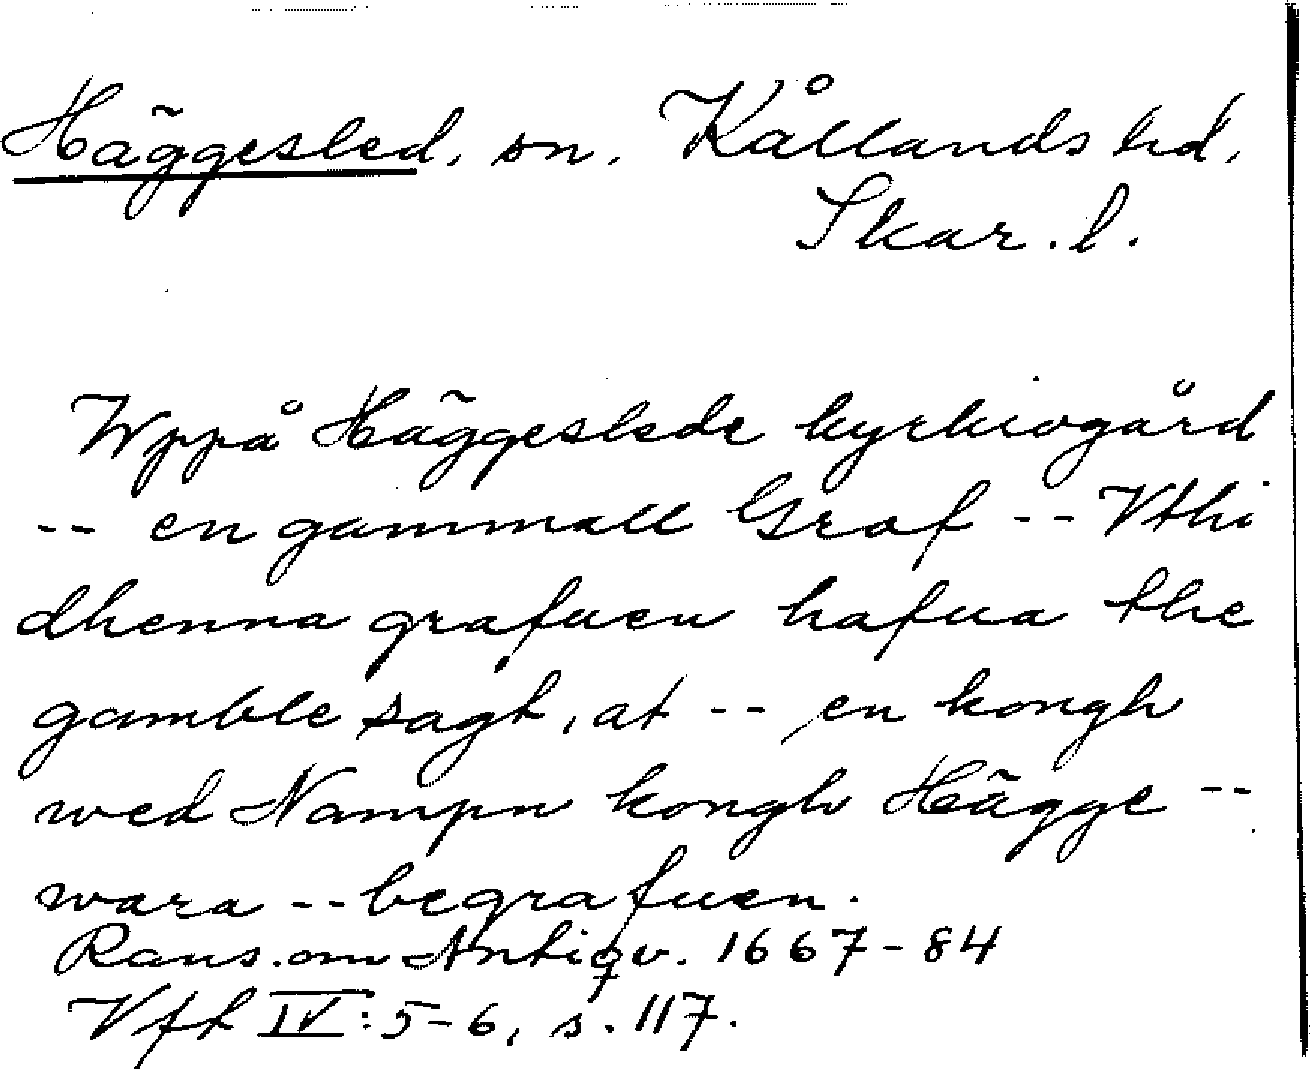 Häggesled, sn. Kållands hd,
Skar. l.
Wppå Häggeslede kyrkiogård
-- en gammall Graf -- Vthi
dhenna grafuen hafua the
gamble sagt, at -- en kongh
wed Nampn kongh Hägge --
wara -- begrafuen.
Rans. om Antiqv. 1667-84
Vft IV: 5-6, s. 117.